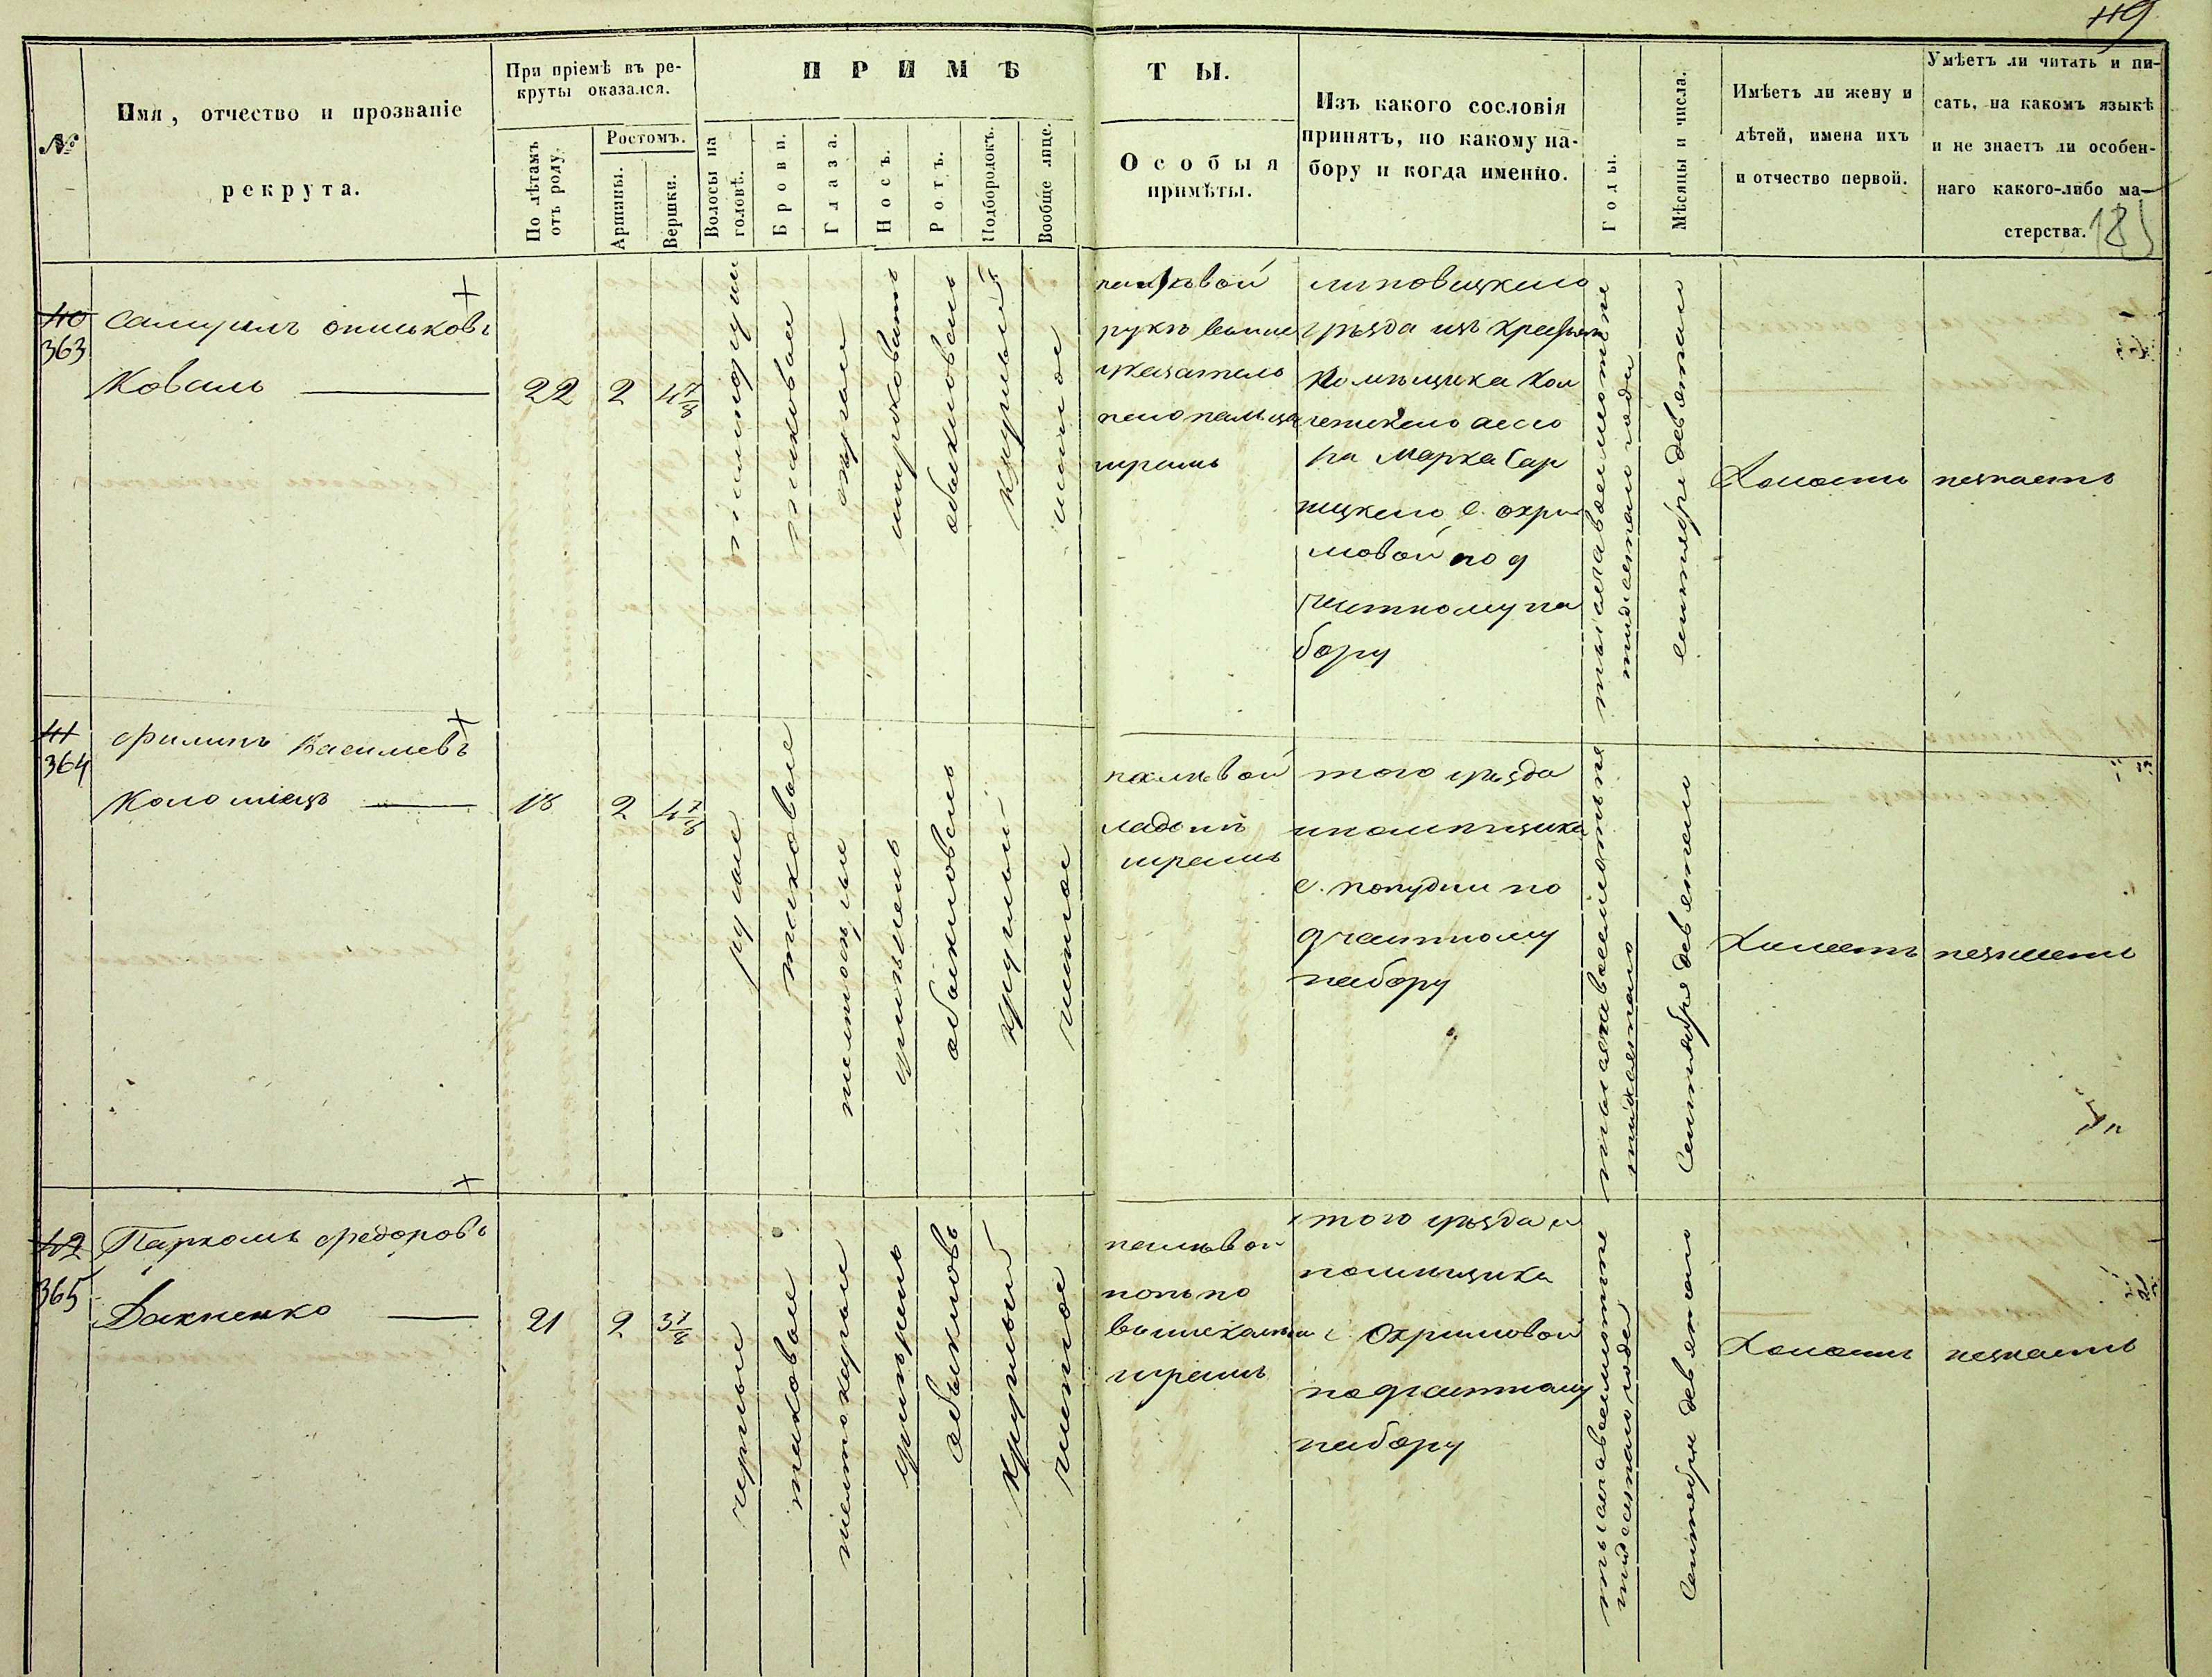 119
№
Имя, отчество и прозваніе
рекрута.
При пріемѣ въ ре-
круты оказался.
По лѣтамъ
отъ роду.
Ростомъ.
Аршины.
Вершки.
ПРИМѢ
ТЫ.
Волосы на
головѣ.
Брови.
Глаза.
Носъ.
Ротъ.
Подбородокъ.
Вообще лице.
Особыя
примѣты.
Изъ какого сословія
принятъ, по какому на-
бору и когда именно.
Годы.
Мѣсяцы и числа.
Имѣетъ ли жену и
дѣтей, имена ихъ
и отчество первой.
Умѣетъ ли читать и пи-
сать, на какомъ языкѣ
и не знаетъ ли особен-
наго какого-либо ма-
стерства.
40
363
Самуилъ
Коваль
22
2
4 7/8
таковые
широковатъ
обыкновенъ
круглый
чистое
руки выше
указатель
наго пальца
шрамъ
липовецкаго
уѣзда изъ крестьян
помѣщика Кол
лежскаго ассо
ра Марка Сар
нецкаго с. Охри
мовой по 9
частному на
бору
тысяча восемьсотъ пя
тидесятаго года
сентября девятаго
Холостъ
незнаетъ
41
364
Филипъ Василіевъ
Коломіецъ
18
2
4 7/8
русые
таковые
умѣренъ
обыкновенъ
круглый
чистое
на лѣвой
ладонѣ
шрамъ
того уѣзда
и помѣщика
с. попудни по
9 частному
набору
тысяча восемьсотъ пя
тидесятаго
Сентября девятаго
Холостъ
незнаетъ
42
365
Пархомъ Федоровъ
Дахненко
21
2
3 7/8
черные
таковые
желтокарые
умѣренъ
обыкновъ
круглый
чистое
на лѣвой
шрамъ
того уѣзда и
помѣщика
с. Охримовой
по 9 частному
набору
тысяча восемьсотъ пя
тидесятаго года
Сентября девятаго
Холостъ
незнаетъ